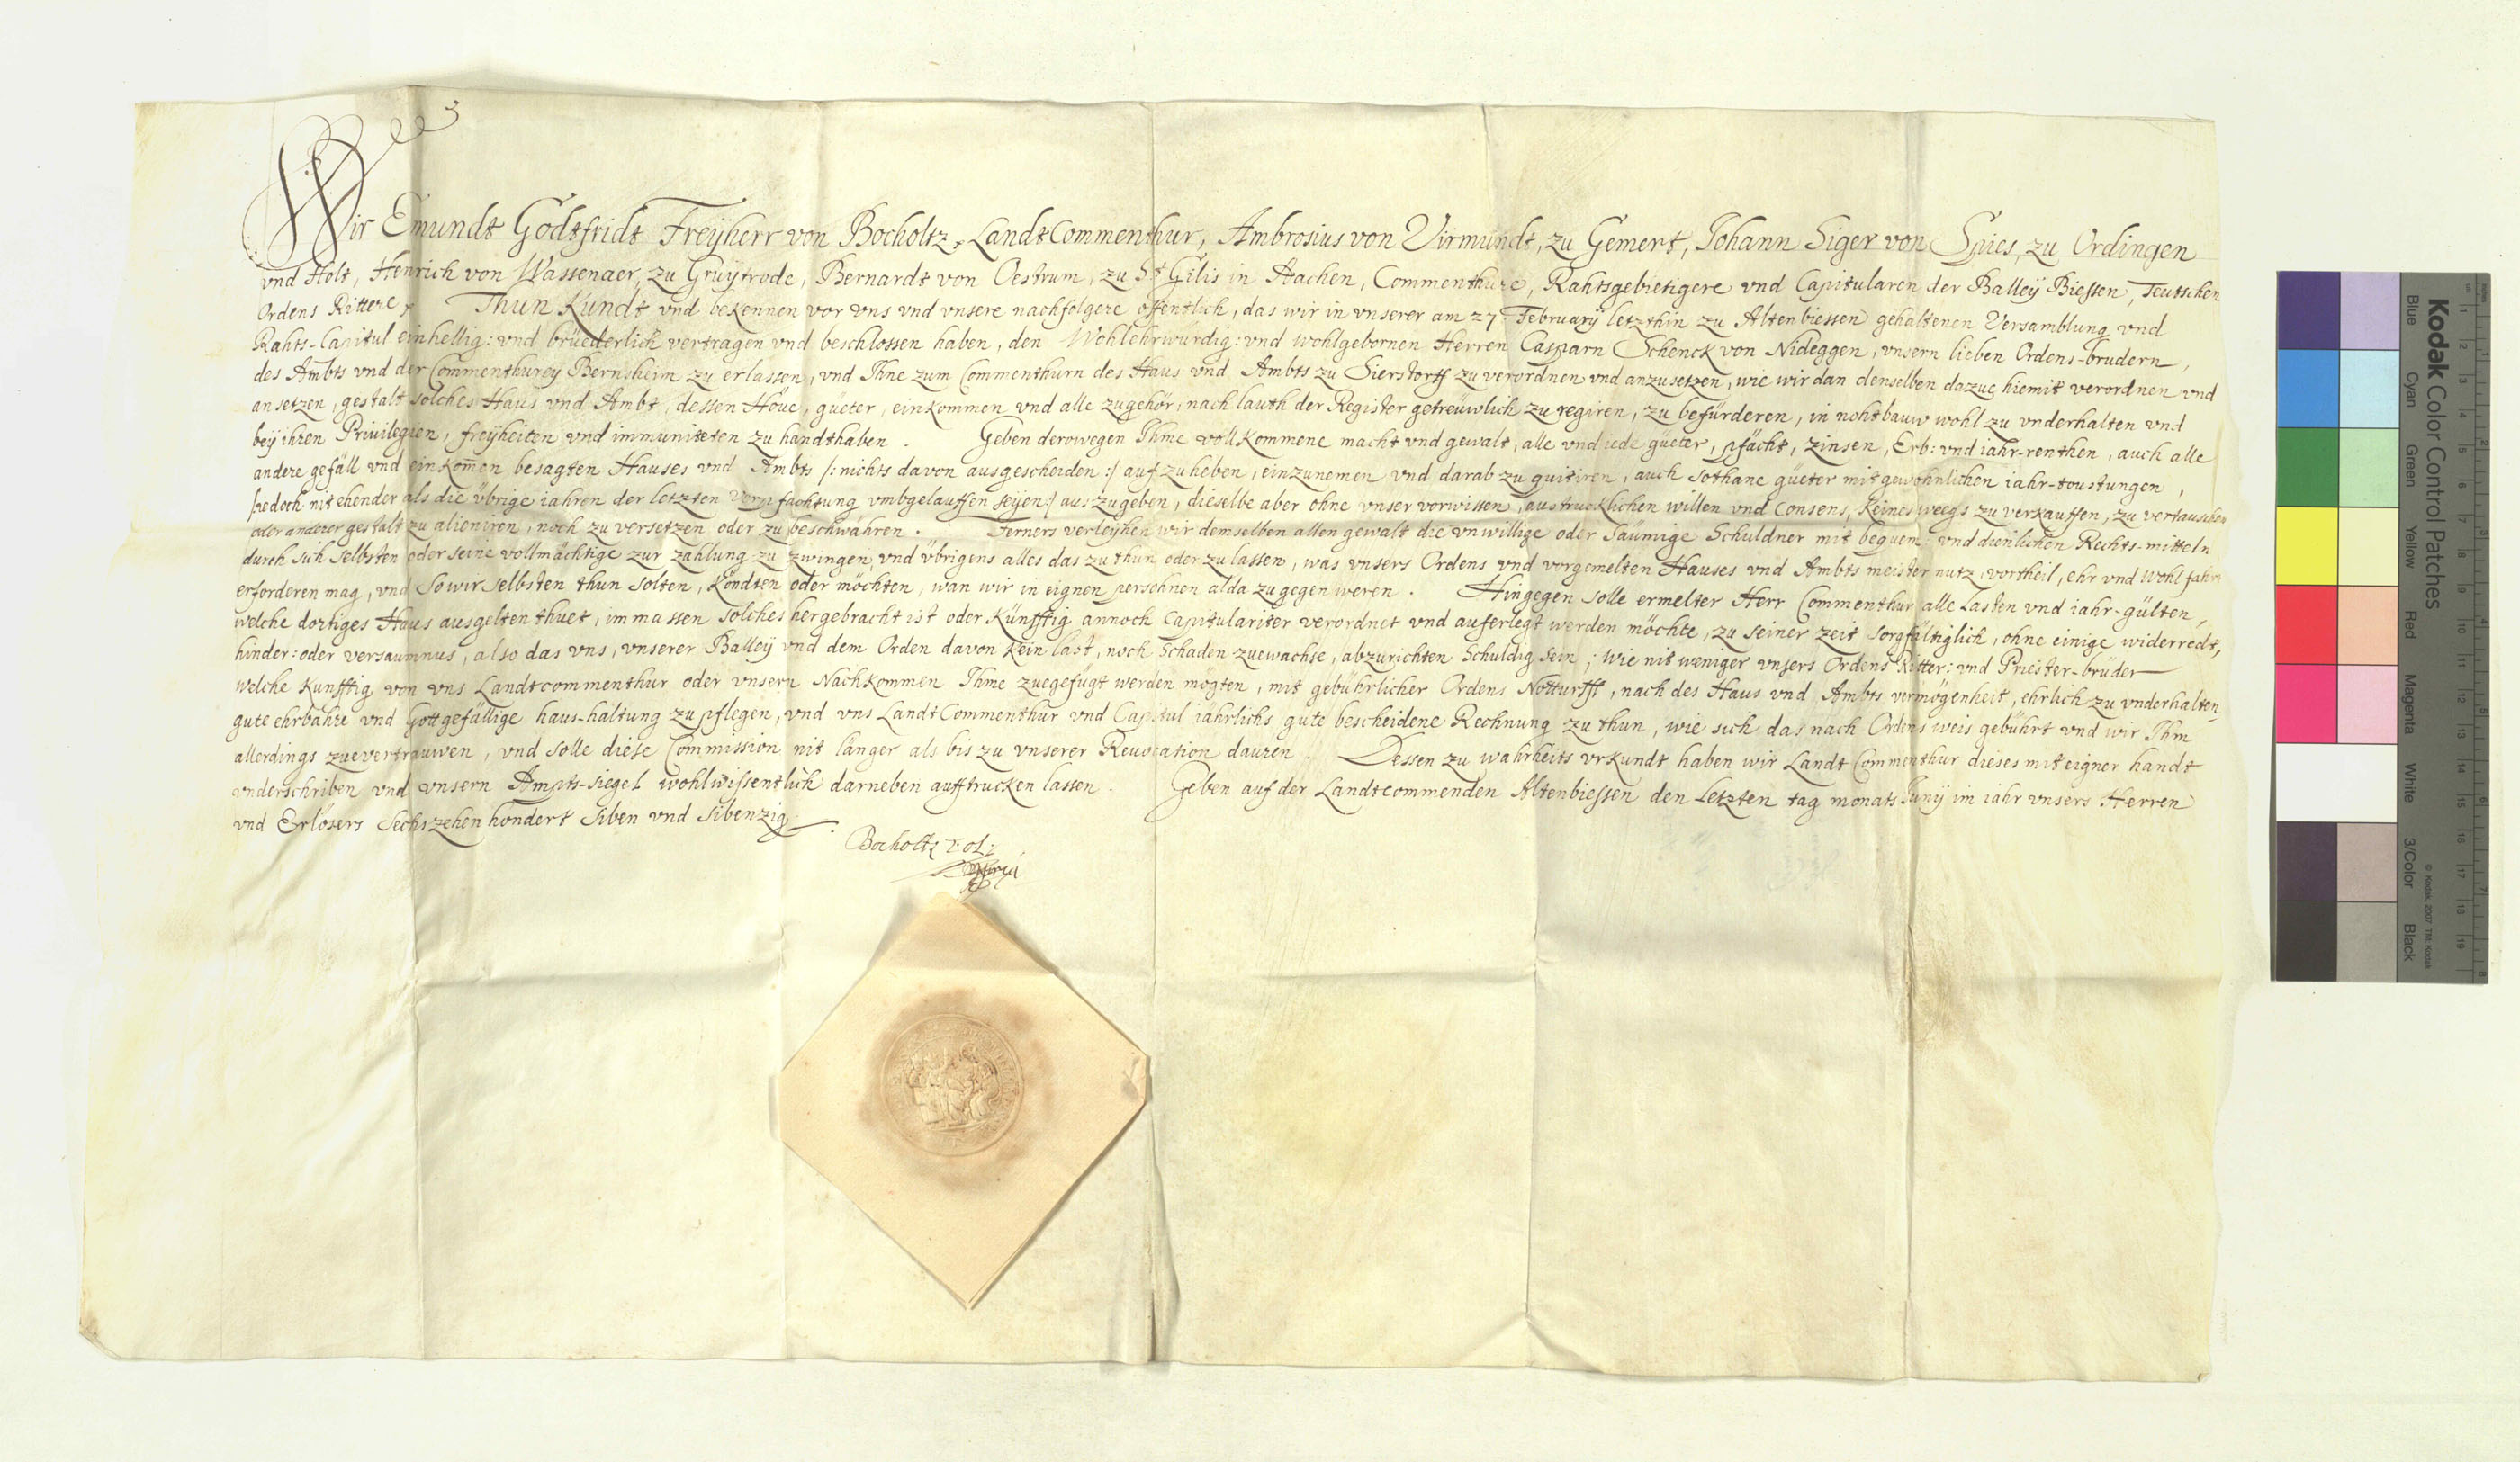 Wir Emundt Godtfridt Freÿherr von Bocholtz, LandtCommenthur, Ambrosius von Virmundt, zu Gemert, Johann Siger von Spies, zu Ordingen
vnd Holt, Henrich von Wassenaer, zu Gruÿtrode, Bernardt von Oestrum, zu St Gilis in Aachen, Commenthure, Rahtsgebietigere vnd Capitularen der Balleÿ Biessen, Teutschen
Ordens Rittere, Thun Kundt vnd bekennen vor vns vnd vnsere nachfolgere offentlich, das wir in vnserer am 27 Februarÿ letzthin zu Altenbiessen gehaltenen Versamblung vnd
Rahts-Capitul einhellig: vnd brüederlich vertragen vnd beschlossen haben, den Wohlehrwürdig: vnd wohlgebornen Herren Casparn Schenck von Nideggen, vnsern lieben Ordens-brudern,
des Ambts vnd der Commenthureÿ Bernsheim zu erlassen, vnd Ihne zum Commenthurn des Haus vnd Ambts zu Sierstorff zu verordnen vnd anzusetzen, wie wir dan denselben dazue hiemit verordnen vnd
ansetzen, gestalt solches Haus vnd Ambt, dessen Höue, güeter, einkommen vnd alle zugehör, nach lauth der Register getreüwlich zu regiren, zu befürderen, in nohtbauw wohl zu vnderhalten vnd
beÿ ihren Priuilegien, freÿheiten vnd immuniteten zu handthaben. Geben derowegen Ihme vollkommene macht vnd gewalt, alle vnd iede güeter, pfächt, zinsen, Erb: vnd iahr-renthen, auch alle
andere gefäll vnd einkom̄en besagten Hauses vnd Ambts /: nichts davon ausgescheiden :/ auf zu heben, einzunemen vnd darab zu quitiren, auch sothane güeter mit gewohnlichen iahr-toustungen,
/: iedoch nit ehender als die übrige iahren der letzten verpfachtung vmbgelauffen seÿen :/ aus zugeben, dieselbe aber ohne vnser vorwissen, austrucklichen willen vnd Consens, Keines weegs zu verkauffen, zu vertauschen
oder anderer gestalt zu alieniren, noch zu versetzen oder zu beschwähren. Ferners verleÿhen wir demselben allen gewalt die vnwillige oder Säumige Schuldner mit bequem: vnd dienlichen Rechts-mitteln
durch sich selbsten oder seine vollmächtige zur zahlung zu zwingen, vnd übrigens alles das zu thun oder zu lassen, was vnsers Ordens vnd vorgemelten Hauses vnd Ambts meister nutz, vortheil, ehr vnd wohlfahrt
erforderen mag, vnd so wir selbsten thun solten, Köndten oder möchten, wan wir in eignen persohnen alda zugegen weren. Hingegen solle ermelter Herr Commenthur alle Lasten vnd iahr-gülten,
welche dortiges Haus ausgelten thuet, immassen solches hergebracht ist oder Künfftig annoch Capitulariter verordnet vnd auferlegt werden möchte, zu seiner zeit sorgfältiglich, ohne einige widerredt,
hinder: oder versaumnus, also das vns, vnserer Balleÿ vnd dem Orden davon Kein last, noch Schaden zuewachse, abzurichten Schuldig sein; Wie nit weniger vnsers Ordens Ritter: vnd Priester-brüder
welche Kunfftig von vns Landtcommenthur oder vnsern Nachkommen Ihme zuegefügt werden mögten, mit gebührlicher Ordens Notturfft, nach des Haus vnd Ambts vermögenheit, ehrlich zu vnderhalten,
gute ehrbahre vnd Gottgefällige haus-haltung zu pflegen, vnd vns LandtCommenthur vnd Capitul iährlichs gute bescheidene Rechnung zu thun, wie sich das nach Ordens weis gebührt vnd wir Ihm
allerdings zuevertrauwen, vnd solle diese Commission nit länger als bis zu vnserer Reuocation dauren. Dessen zu wahrheits vrkundt haben wir LandtCommenthur dieses mit eigner handt
vnderschriben vnd vnsern Ampts-siegel wohlwissentlich darneben aufftrucken lassen. Geben auf der Landtcommenden Altenbiessen den Letzten tag monats Junÿ im iahr vnsers Herren
vnd Erlösers Sechszehenhondert Siben vnd Sibenzig.
Bocholtz
Kodak Color Control Patches
Blue Cyan Green Yellow Red Magenta White 3/Color Black
© Kodak, 2007 TM: Kodak